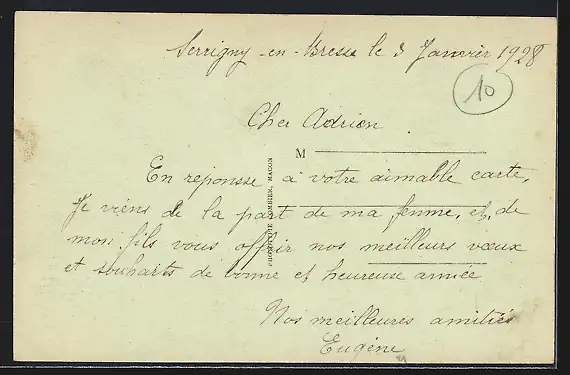 Serrigny-en-Bresse le 3 Janvier 1928
10
Cher Adrien
M
En reponsse à votre aimable carte,
Je viens de la part de ma femme, et, de
mon fils vous offrir nos meilleurs vœux
et souhaits de bonne et heureuse année
Nos meilleures amitiés
Eugène
COMBIER, MACON